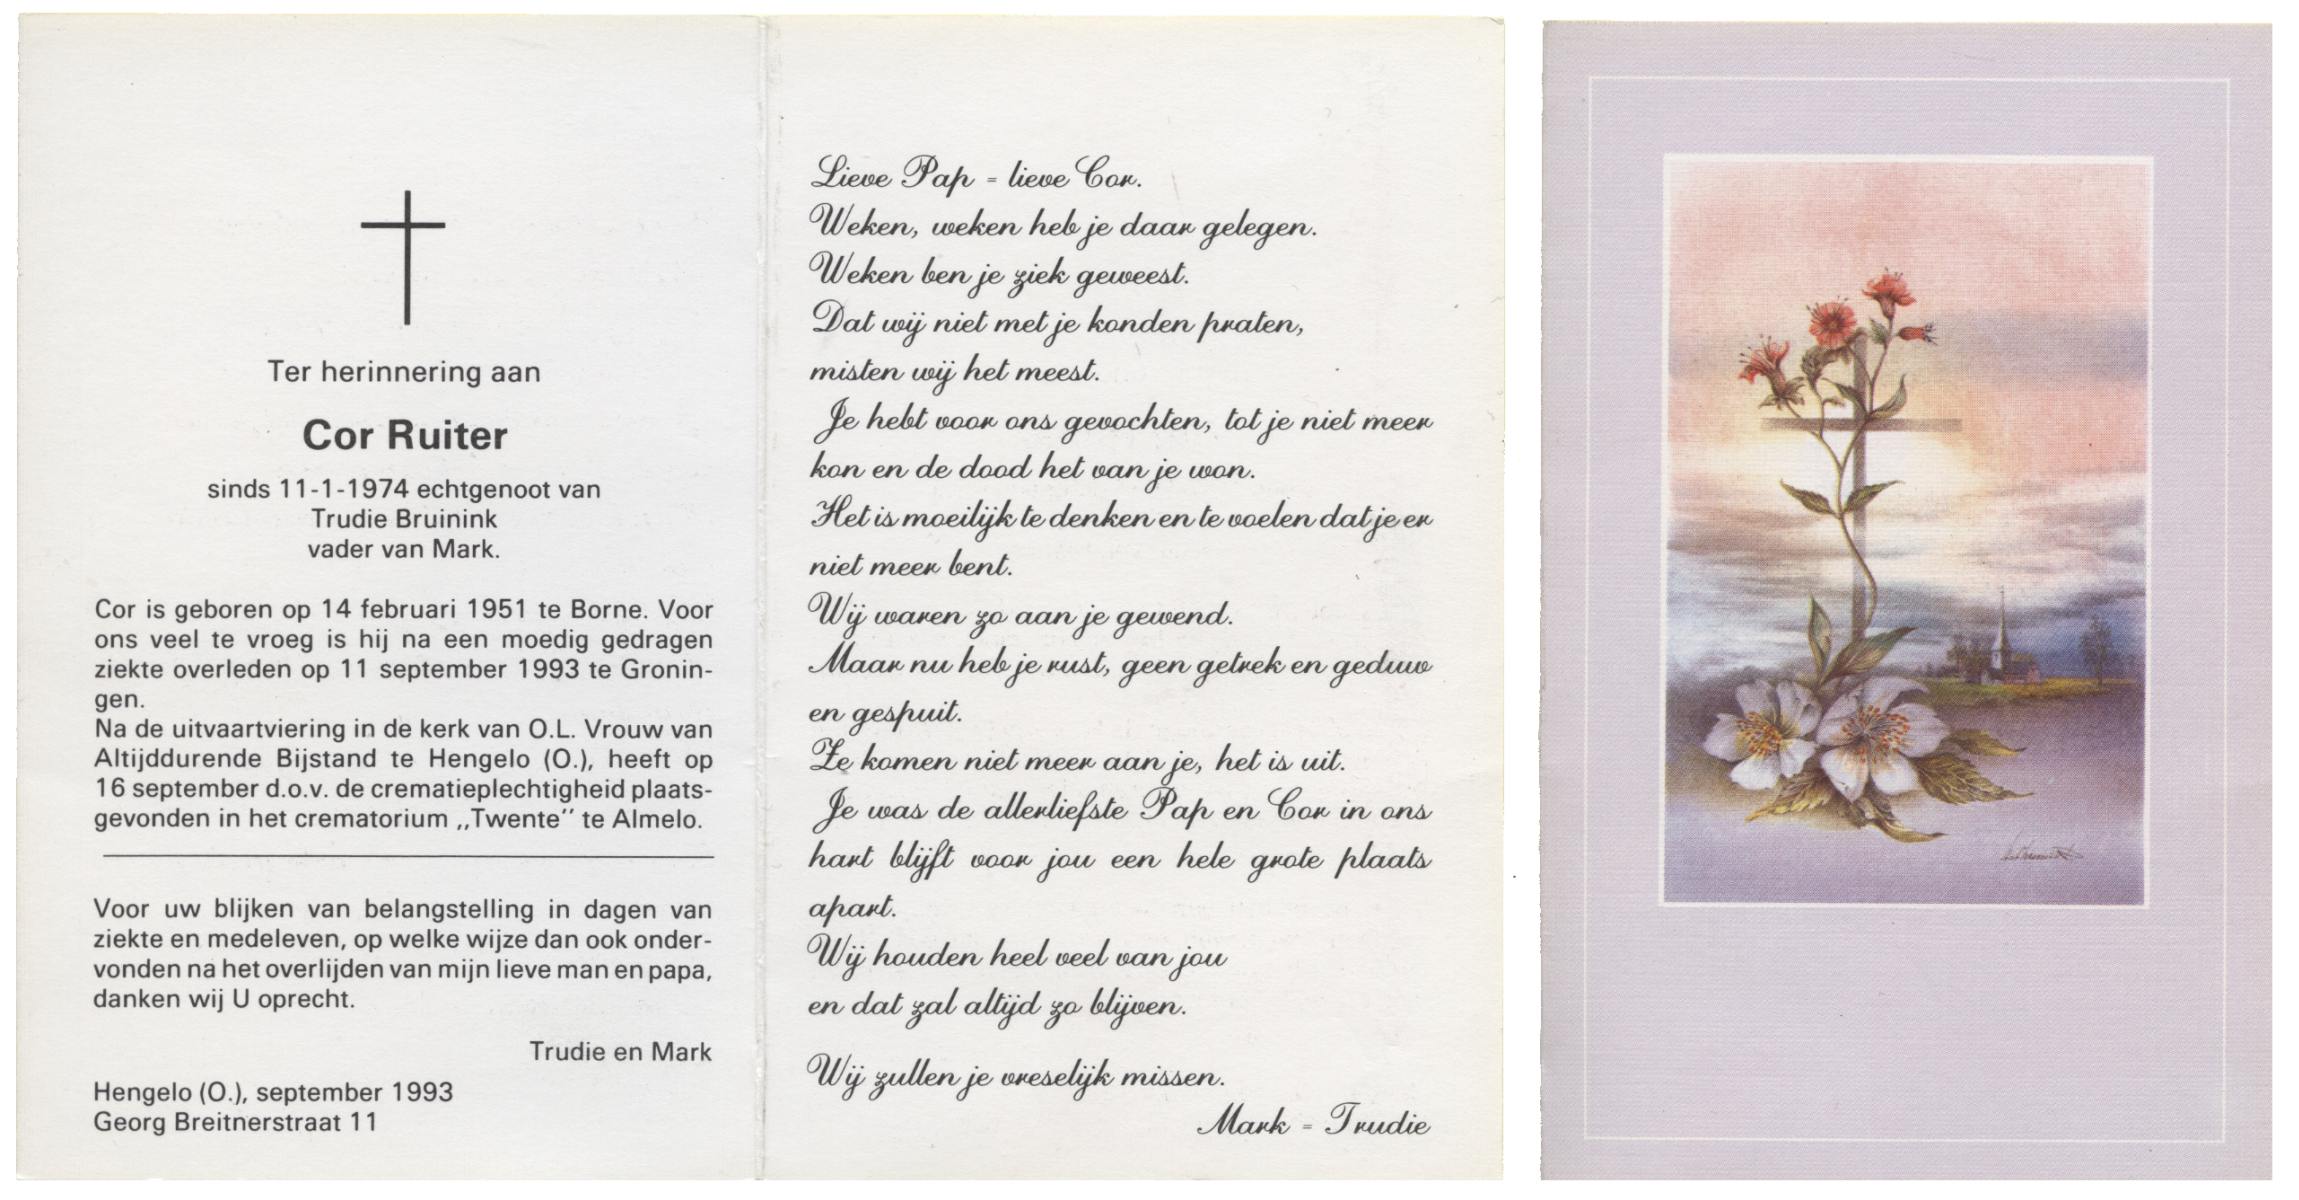 Ter herinnering aan
Cor Ruiter
sinds 11-1-1974 echtgenoot van
Trudie Bruinink
vader van Mark.
Cor is geboren op 14 februari 1951 te Borne. Voor
ons veel te vroeg is hij na een moedig gedragen
ziekte overleden op 11 september 1993 te Gronin-
gen.
Na de uitvaartviering in de kerk van O.L. Vrouw van
Altijddurende Bijstand te Hengelo (O.), heeft op
16 september d.o.v. de crematieplechtigheid plaats-
gevonden in het crematorium ,,Twente'' te Almelo.
Voor uw blijken van belangstelling in dagen van
ziekte en medeleven, op welke wijze dan ook onder-
vonden na het overlijden van mijn lieve man en papa,
danken wij U oprecht.
Trudie en Mark
Hengelo (O.), september 1993
Georg Breitnerstraat 11
Lieve Pap = lieve Cor.
Weken, weken heb je daar gelegen.
Weken ben je ziek geweest.
Dat wij niet met je konden praten,
misten wij het meest.
Je hebt voor ons gevochten, tot je niet meer
kon en de dood het van je won.
Het is moeilijk te denken en te voelen dat je er
niet meer bent.
Wij waren zo aan je gewend.
Maar nu heb je rust, geen getrek en geduw
en gespuit.
Ze komen niet meer aan je, het is uit.
Je was de allerliefste Pap en Cor in ons
hart blijft voor jou een hele grote plaats
apart.
Wij houden heel veel van jou
en dat zal altijd zo blijven.
Wij zullen je vreselijk missen.
Mark = Trudie